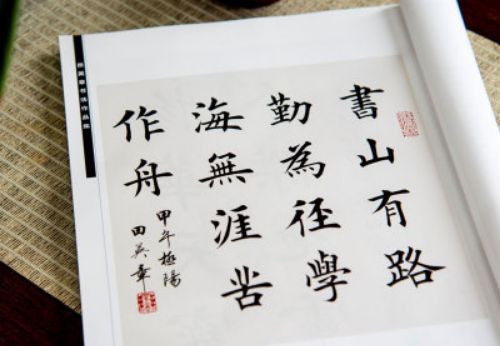 書山有路
勤為径學
海無涯苦
作舟
甲午極陽
田英章